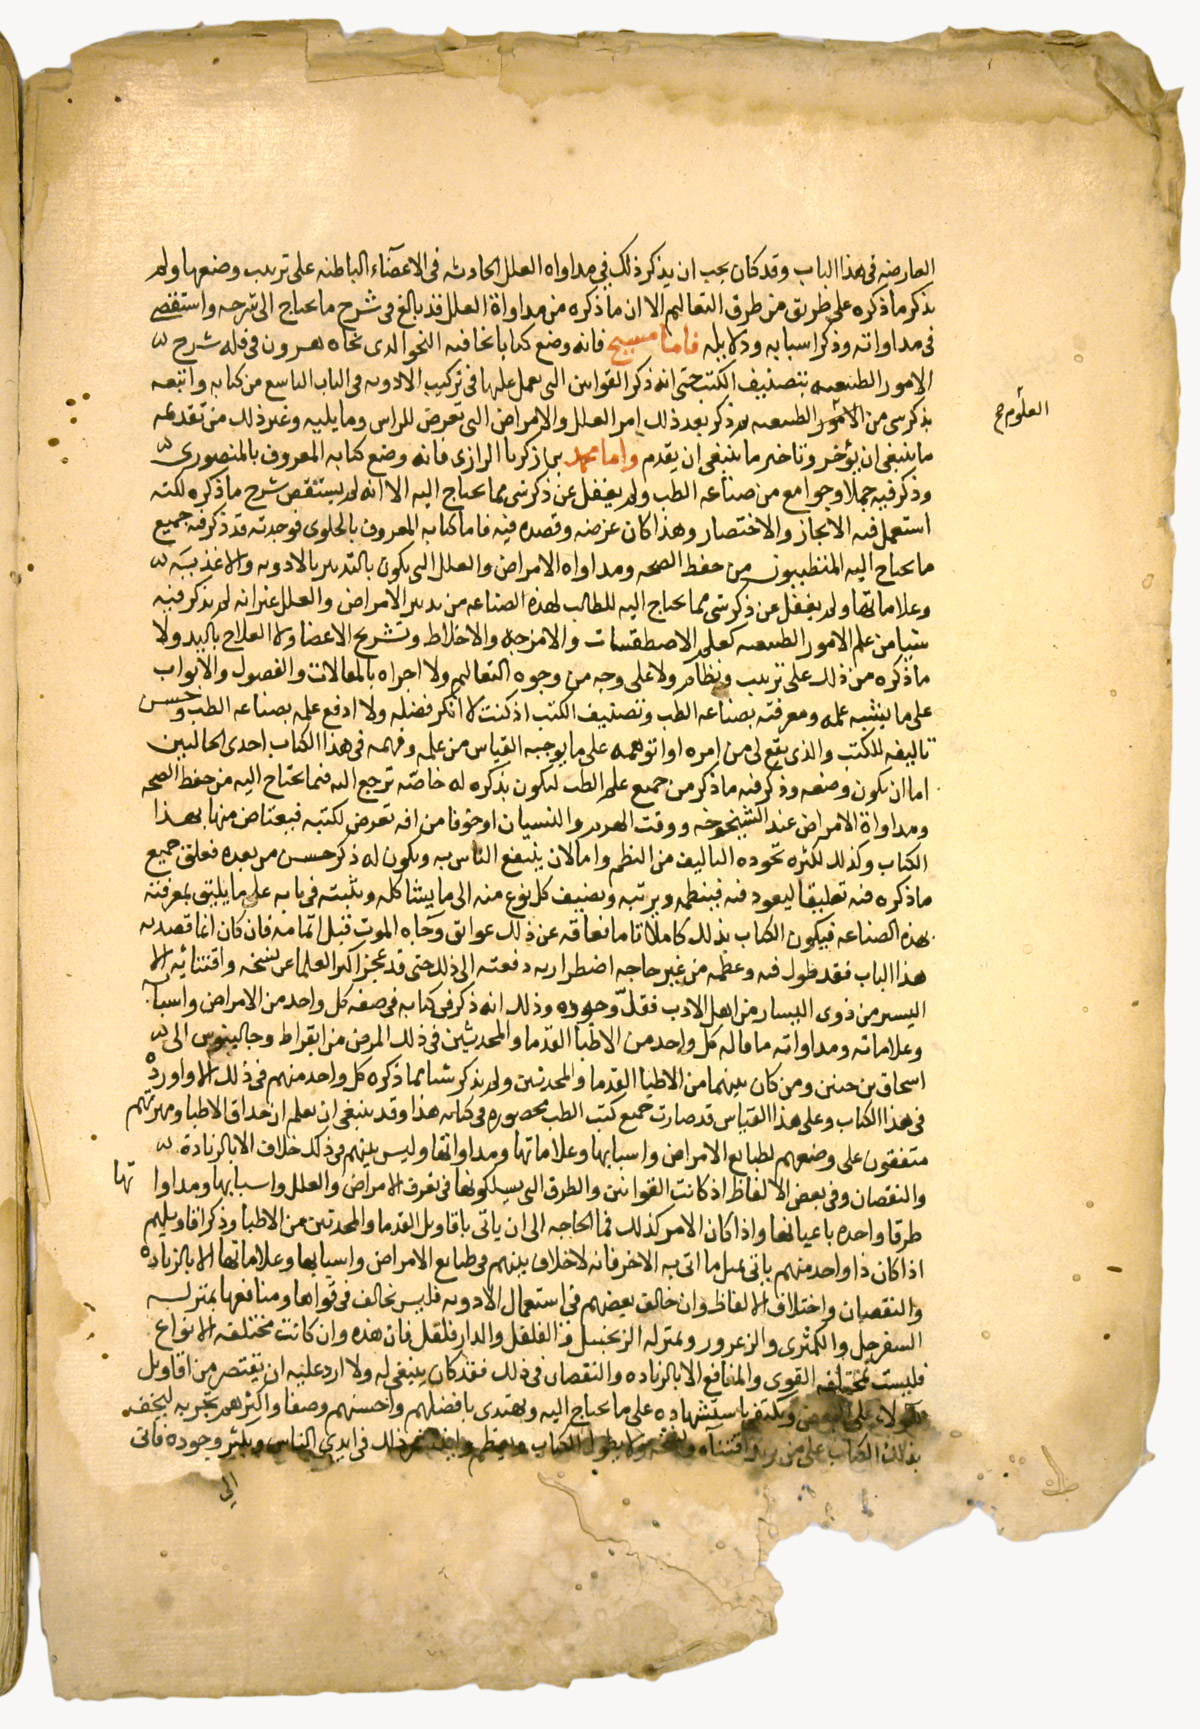 العارضه فى هذا الباب وقد كان يجب ان يذكر ذلك فى مداواه العلل الحادثه فى الاعضآء الباطنه على ترتيب وضعها ولم
يذكر ما ذكره على طريق من طرق التعاليم الا ان ما ذكره من مداواة العلل قد بالغ فى شرح ما يحتاج الى شرحه واستقصى
فى مداواته وذكر اسبابه ودلايله فاما مسيح فانه وضع كتابا نحا فيه النحو الذى نحاه هرون فى قله شرح
الامور الطبيعيه بتصنيف الكتب حتى انه ذكر القوانين التى يعمل عليها فى تركيب الادويه فى الباب التاسع من كتابه واتبعه
بذكر شى من الامور الطبيعيه ثم ذكر بعد ذلك امر العلل والامراض التى تعرض للراس وما يليه وغير ذلك من تقدمه
العلوم صح
ما ينبغى ان يؤخر وتاخير ما ينبغى ان يقدم واما محمد بن زكريا الرازى فانه وضع كتابه المعروف بالمنصورى
وذكر فيه جملا وجوامع من صناعه الطب ولم يغفل عن ذكر شى مما يحتاج اليه الا انه لم يستقص شرح ما ذكره لكنه
استعمل فيه الايجاز والاختصار وهذا كان غرضه وقصده فيه فاما كتابه المعروف بالحاوى فوجدته قد ذكر فيه جميع
ما يحتاج اليه المتطببون من حفظ الصحه ومداواه الامراض والعلل التى يكون بالتدبير بالادويه والاغذيه
وعلاماتها ولم يغفل عن ذكر شى مما يحتاج اليه الطالب لهذه الصناعه من تدبير الامراض والعلل غير انه لم يذكر فيه
شيا من علم الامور الطبيعيه كعلم الاصطقسات والامزجه والاخلاط وتشريح الاعضا ولا العلاج باليد ولا
ما ذكره من ذلك على ترتيب ونظام ولا على وجه من وجوه التعاليم ولا اجراه بالمقالات والفصول والابواب
على ما يشبه علمه ومعرفته بصناعه الطب وتصنيف الكتب اذ كنت لا انكر فضله ولا ادفع علمه بصناعه الطب وحسن
تاليفه للكتب والذى يقع لى من امره او اتوهمه على ما يوجبه القياس من علمه وفهمه فى هذا الكتاب احدى الحالتين
اما ان يكون وضعه وذكر فيه ما ذكر من جميع علم الطب ليكون يذكره له خاصه ترجع اليه فيما يحتاج اليه من حفظ الصحه
ومداواة الامراض عند الشيخوخه ووقت الهرم والنسيان او خوفا من افه تعرض لكتبه فيعتاض منها بهذا
الكتاب وكذلك لكثره تجوده التاليف من النظم واما لان ينتفع الناس به ويكون له ذكر حسن من بعده فعلق جميع
ما ذكره فيه تعليقا ليعود فيه فينظمه ويرتبه ويضيف كل نوع منه الى ما يشاكله ويثبته فى بابه على ما يليق بمعرفته
بهذه الصناعه فيكون الكتاب بذلك كاملا تاما فعاقه عن ذلك عوايق وجآه الموت قبل اتمامه فان كان انما قصد به
هذا الباب فقد طول فيه وعظمه من غير حاجه اضطراريه دفعته الى ذلك حتى قد عجز اكثر العلما عن نسخه واقتنائه الا
اليسير من ذوى اليسار من اهل الادب فقلّ وجوده وذلك انه ذكر فى كتابه فى صفه كل واحد من الامراض واسبابه
وعلاماته ومداواته ما قاله كل واحد من الاطبا القدما والمحدثين فى ذلك المرض من ابقراط وجالينوس الى
اسحاق بن حنين ومن كان بينهما من الاطبا القدما والمحدثين ولم يذكر شيا مما ذكره كل واحد منهم فى ذلك الا واورده
فى هذا الكتاب وعلى هذا القياس قد صارت جميع كتب الطب محصوره فى كتابه هذا وقد ينبغى ان يعلم ان حذاق الاطبا ومهرتهم
متفقون على وضعهم لطبايع الامراض واسبابها وعلاماتها ومداواتها وليس بينهم فى ذلك خلاف الا بالزيادة
والنقصان وفى بعض الالفاظ اذ كانت القوانين والطرق التى يسلكونها فى تعرف الامراض والعلل واسبابها ومداواتها
طرقا واحده باعيانها واذا كان الامر كذلك فما الحاجه الى ان ياتى باقاويل القدما والمحدثين من الاطبا وذكر اقاويلهم
اذا كان ذا واحد منهم ياتى بمثل ما اتى به الاخر فانه لا خلاف بينهم فى طبايع الامراض واسبابها وعلاماتها الا بالزياده
والنقصان واختلاف الالفاظ وان خالف بعضهم فى استعمال الادويه فليس نخالف فى قواها ومنافعها بمنزله
السفرجل والكمثرى والزعرور وبمنزله الزنجبيل والفلفل والدارفلفل فان هذه وان كانت مختلفه الانواع
فليست مختلفه القوى والمنافع الا بالزياده والنقصان فى ذلك فقد كان ينبغى له ولا ارد عليه ان يقتصر من اقاويل
هؤلاء على البعض ويكتفى باستشهاده على ما يحتاج اليه ويهتدى بافضلهم واحسنهم وصفا واكثرهم تجربه ليخف
بذلك الكتاب على من يريد اقتنآه ونسخه ولا يطول الكتاب ويعظم ذلك فى ايدى الناس ويكثر وجوده فانى
الى